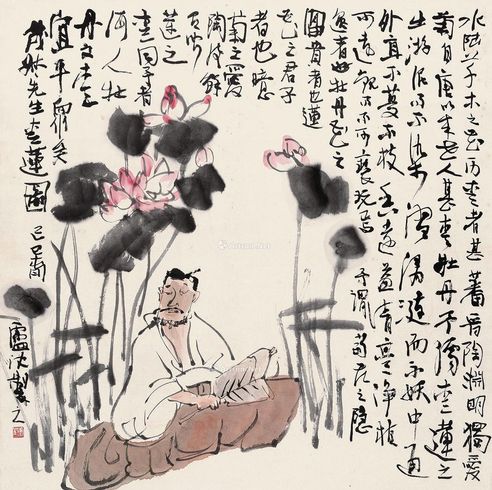 水陸草木之花可愛者甚蕃晉陶淵明獨愛
菊自唐以來世人甚愛牡丹予獨愛蓮之
出淤泥而不染濯清漣而不妖中通
外直不蔓不枝香遠益清亭亭淨植
可遠觀而不可褻玩焉予謂菊花之隱
逸者也牡丹花之
富貴者也蓮
花之君子
者也噫
菊之愛
陶後鮮
有聞
蓮之
愛同予者
何人牡
丹之愛
宜乎眾矣
茂叔先生愛蓮圖
盧沉